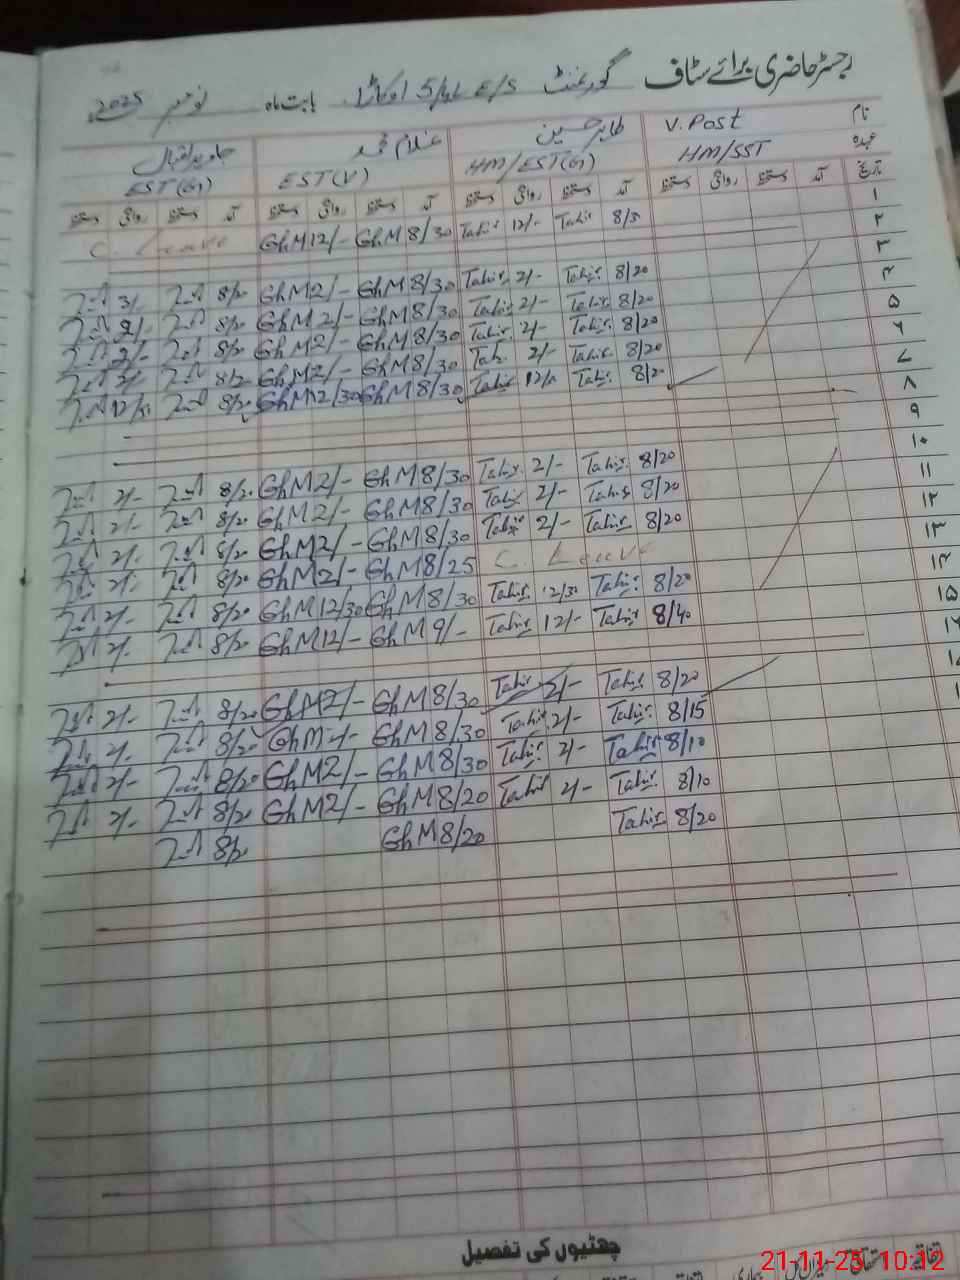 رجسٹر حاضری برائے سٹاف گورنمنٹ E/S 5/4L اوکاڑا بابت ماہ نومبر 2025
نام V. Post طاہر حسین غلام محمد جاوید اقبال
عہدہ HM/SST HM/EST(G) EST(V) EST(G)
تاریخ آمد دستخط روانگی دستخط آمد دستخط روانگی دستخط آمد دستخط روانگی دستخط آمد دستخط روانگی دستخط
۱ C. Leave GhM 12/- GhM 8/30 Tahir 12/- Tahir
۲
۳ 3/- 8/20 GhM 2/- GhM 8/30 Tahir 2/- Tahir 8/20
۴ 2/- 8/20 GhM 2/- GhM 8/30 Tahir 2/- Tahir 8/20
۵ 2/- 8/20 GhM 2/- GhM 8/30 Tahir 2/- Tahir 8/20
۶ 2/- 8/20 GhM 2/- GhM 8/30 Tah. 2/- Tahir 8/20
۷ 8/20 GhM 12/30 GhM 8/30 Tahir Tahir 8/20
۸
۹
۱۰ 2/- 8/20 GhM 2/- GhM 8/30 Tahir 2/- Tahir 8/20
۱۱ 2/- 8/20 GhM 2/- GhM 8/30 Tahir 2/- Tahir 8/20
۱۲ 2/- 8/20 GhM 2/- GhM 8/30 Tahir 2/- Tahir 8/20
۱۳ 2/- 8/20 GhM 2/- GhM 8/25 C. Leave
۱۴ 2/- 8/20 GhM 12/30 GhM 8/30 Tahir 12/30 Tahir 8/20
۱۵ 2/- 8/20 GhM 12/- GhM 9/- Tahir 12/- Tahir 8/40
۱۶
2/- 8/20 GhM 2/- GhM 8/30 Tahir 2/- Tahir 8/20
2/- 8/20 GhM 2/- GhM 8/30 Tahir 2/- Tahir 8/15
2/- 8/20 GhM 2/- GhM 8/30 Tahir 2/- Tahir 8/10
2/- 8/20 GhM 2/- GhM 8/20 Tahir 2/- Tahir 8/10
8/20 GhM 8/20 Tahir 8/20
چھٹیوں کی تفصیل
21-11-25 10:12